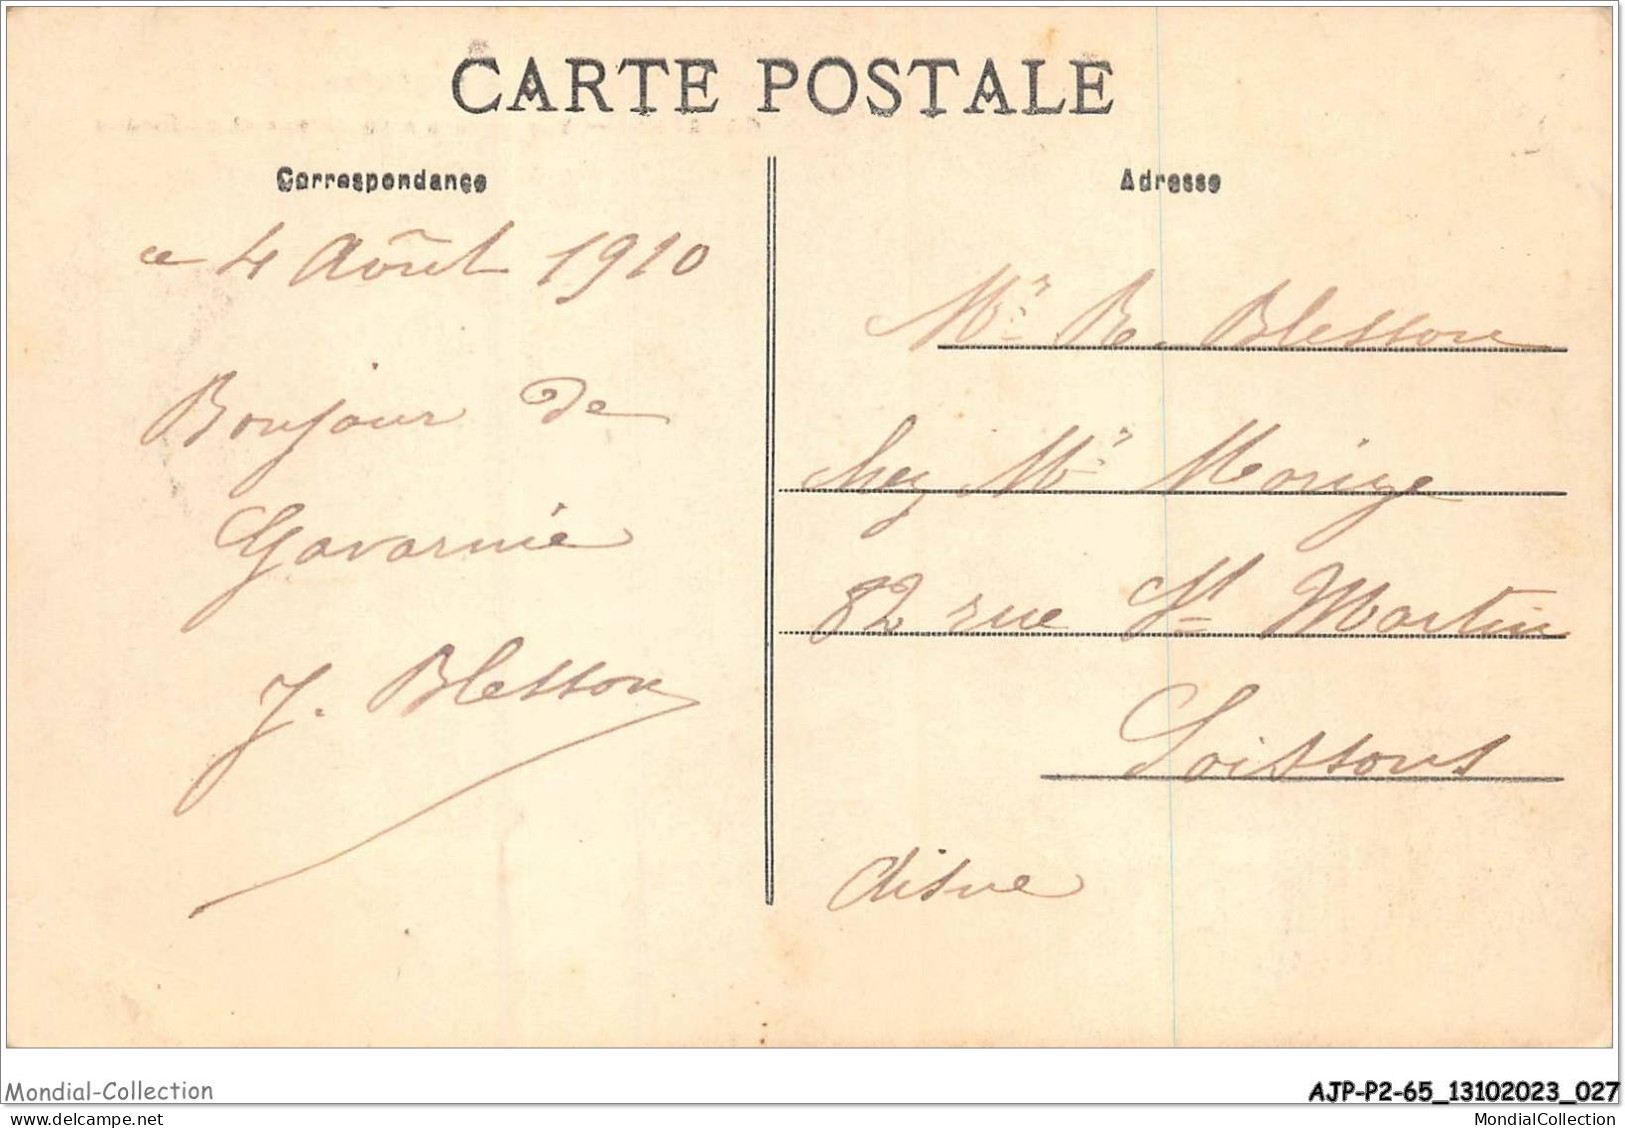 CARTE POSTALE
Correspondance
ce 4 Août 1910
Bonjour de
Gavarnie
J. Blesson
Adresse
Mr R. Blesson
chez Mr
82 rue St Martin
Soissons
Aisne
Mondial-Collection
AJP-P2-65_13102023_027
MondialCollection